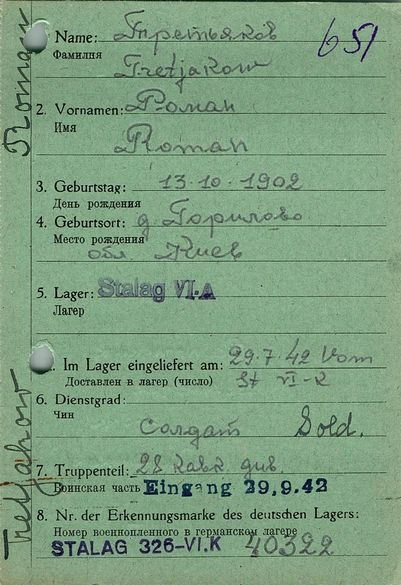 Name: Третьяков 651
Фамилия
Tretjakow
2. Vornamen: Роман
Имя
Roman
3. Geburtstag: 13·10·1902
День рождения
4. Geburtsort: д. Горилово
Место рождения
обл Киев
5. Lager: Stalag VI·A
Лагер
. Im Lager eingeliefert am: 29.7.42 Vom
Доставлен в лагер (число) St VI-K
6. Dienstgrad:
Чин
солдат Sold.
7. Truppenteil: 28 кав. див.
Воинская часть Eingang 29.9.42
8. Nr. der Erkennungsmarke des deutschen Lagers:
Номер военнопленного в германском лагере
STALAG 326-VI.K 40322
Roman
Tretjakow